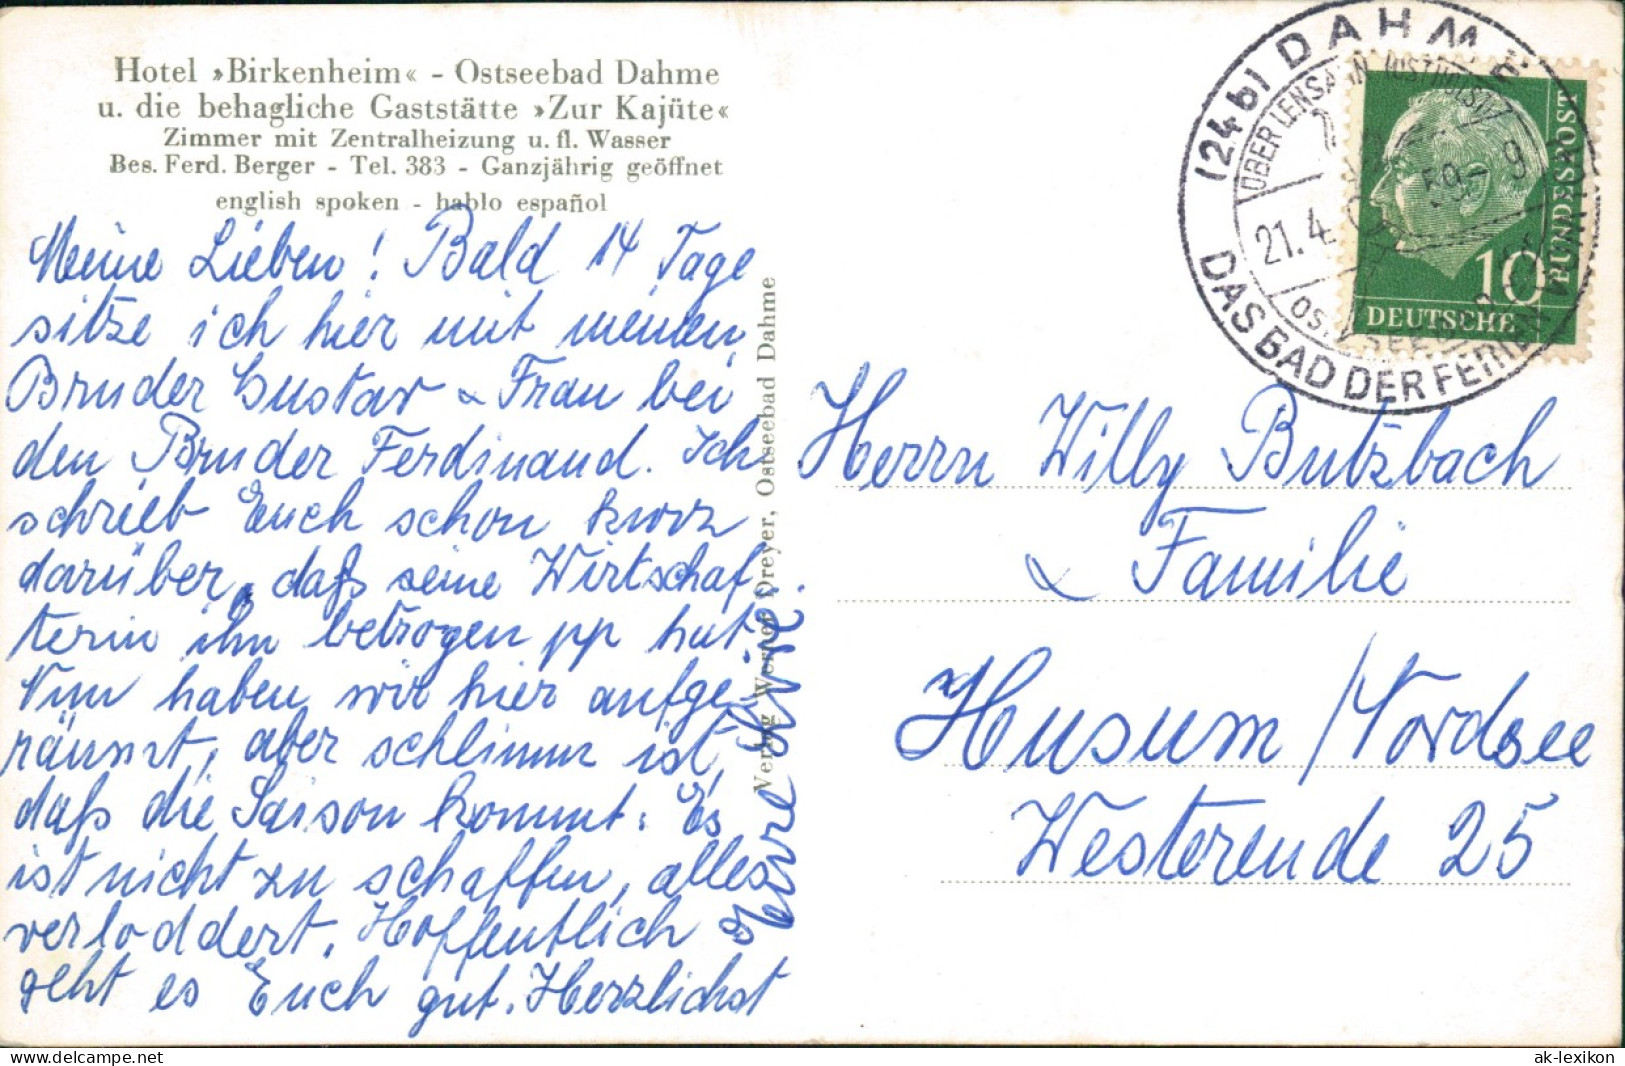 Hotel »Birkenheim« - Ostseebad Dahme
u. die behagliche Gaststätte »Zur Kajüte«
Zimmer mit Zentralheizung u. fl. Wasser
Bes. Ferd. Berger - Tel. 383 - Ganzjährig geöffnet
english spoken - hablo español
Meine Lieben! Bald 14 Tage
sitze ich hier mit meinen
Bruder Gustav & Frau bei
den Bruder Ferdinand. Ich
schrieb Euch schon kurz
darüber, daß seine Wirtschaf
terin ihn betrogen pp hat.
Nun haben wir hier aufge-
räumt, aber schlimm ist,
daß die Saison kommt. Es
ist nicht zu schaffen, alles
verloddert. Hoffentlich
geht es Euch gut. Herzlichst
Verlag Werner Dreyer, Ostseebad Dahme
(24b) DAHME
ÜBER LENSAHN (OSTHOLST)
21.4. 59-9
OSTSEEBAD
DAS BAD DER FERIEN
10
DEUTSCHE
BUNDESPOST
Herrn Willy Butzbach
& Familie
Husum/Nordsee
Westerende 25
ak-lexikon